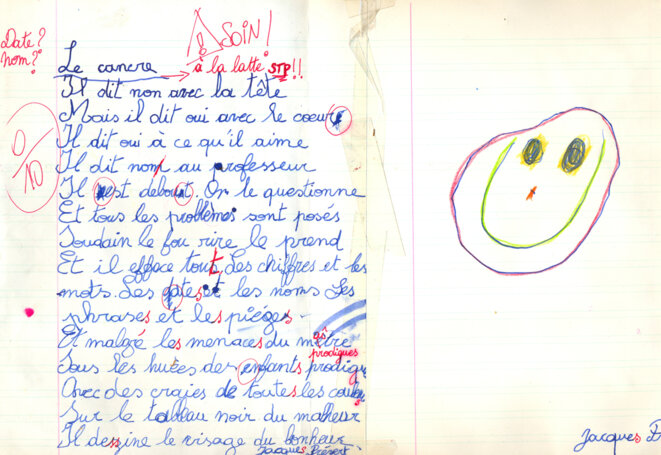 Date?
Nom?
⚠ SOIN!
Le cancre → à la latte STP!!
0/10
Il dit non avec la tête
Mais il dit oui avec le coeur
Il dit oui à ce qu'il aime
Il dit non au professeur
Il est debout. On le questionne
Et tous les problèmes sont posés
Soudain le fou rire le prend
Et il efface tout, Les chiffres et les
mots. Les dates et les noms Les
phrases et les pièges.
Et malgré les menaces du maître
prodigues
Sous les huées des enfants prodig
Avec des craies de toutes les couleu
Sur le tableau noir du malheur
Il dessine le visage du bonheur.
Jacques Prévert
Jacques